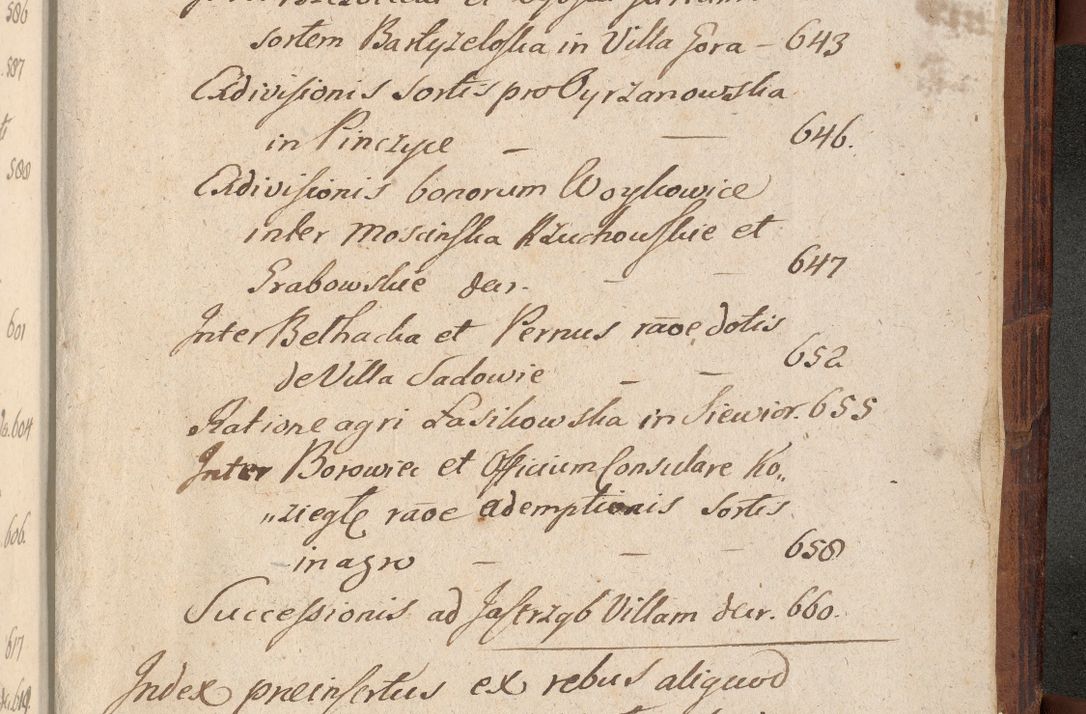 sortem Bartyzeloska in Villa Gora – 643
Exdivisionis sortis pro Pyrzanowska
in Pinczyce – — 646.
Exdivisionis bonorum Woykowice
inter Moscinska Rzuchowskie et
Grabowskie der. – — 647
Inter Bethacka et Pernus raõe dotis
de Villa Sadowie – — 652
Ratione agri Łasikowska in Siewior. 655
Inter Borowiec et Officium Consulare Ko„
„ziegłę raõe ademptionis sortis
in agro – — — 658
Successionis ad Jastrząb Villam der. 660.
Index præinsertus ex rebus aliquod
586
587
588
601
604
606.
617
619.